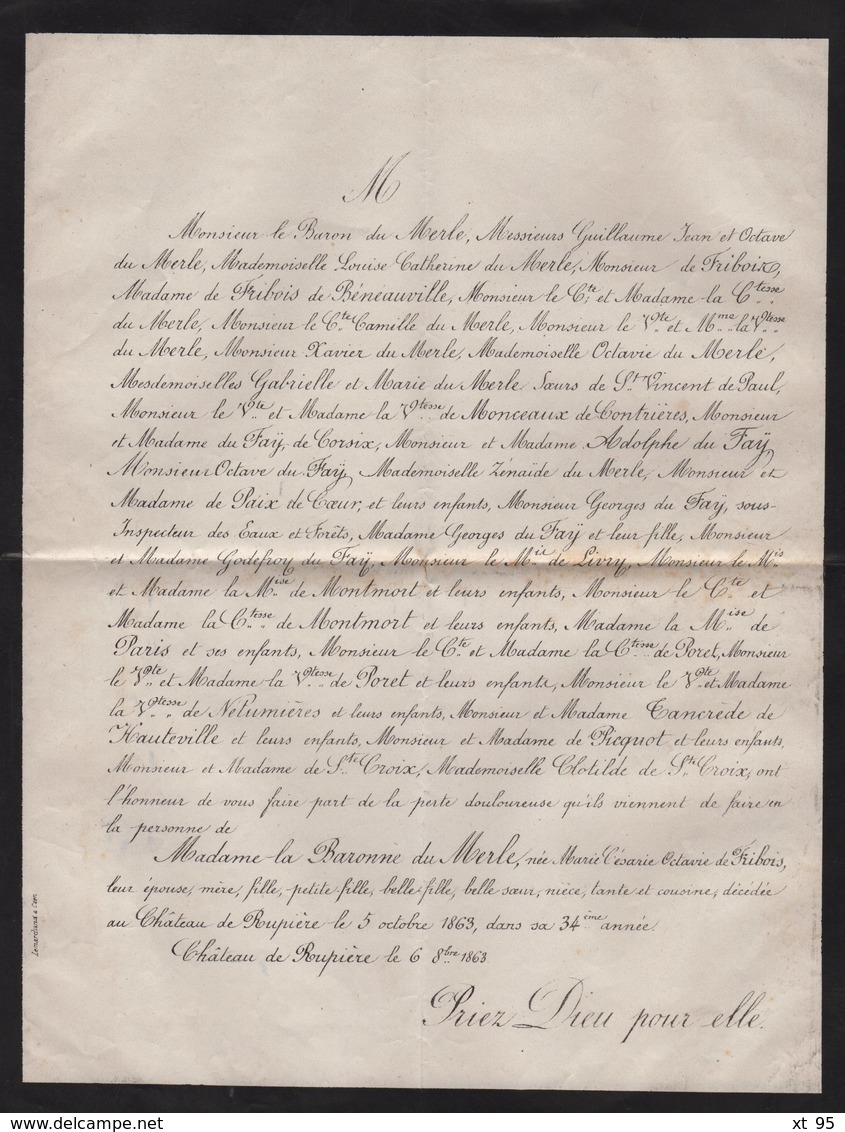 M
Monsieur le Baron du Merle, Messieurs Guillaume Jean et Octave
du Merle, Mademoiselle Louise Catherine du Merle, Monsieur de Fribois,
Madame de Fribois de Béneauville, Monsieur le Cte et Madame la Ctesse
du Merle, Monsieur le Cte Camille du Merle, Monsieur le Vte et Mme la Vtesse
du Merle, Monsieur Xavier du Merle, Mademoiselle Octavie du Merle,
Mesdemoiselles Gabrielle et Marie du Merle Sœurs de St Vincent de Paul,
Monsieur le Vte et Madame la Vtesse de Monceaux de Contrières, Monsieur
et Madame du Faÿ, de Corsix, Monsieur et Madame Adolphe du Faÿ,
Monsieur Octave du Faÿ, Mademoiselle Zénaïde du Merle, Monsieur et
Madame de Paix de Cœur, et leurs enfants, Monsieur Georges du Faÿ, sous-
Inspecteur des Eaux et Forêts, Madame Georges du Faÿ et leur fille, Monsieur
et Madame Godefroy du Faÿ, Monsieur le Mis de Livry, Monsieur le Mis
et Madame la Mise de Montmort et leurs enfants, Monsieur le Cte et
Madame la Ctesse de Montmort et leurs enfants, Madame la Mise de
Paris et ses enfants, Monsieur le Cte et Madame la Ctesse de Poret, Monsieur
le Vte et Madame la Vtesse de Poret et leurs enfants, Monsieur le Vte et Madame
la Vtesse de Netumières et leurs enfants, Monsieur et Madame Tancrède de
Hauteville et leurs enfants, Monsieur et Madame de Picquot et leurs enfants,
Monsieur et Madame de Ste Croix, Mademoiselle Clotilde de Ste Croix, ont
l'honneur de vous faire part de la perte douloureuse qu'ils viennent de faire en
la personne de
Madame la Baronne du Merle, née Marie Césarie Octavie de Fribois,
leur épouse, mère, fille, petite fille, belle fille, belle sœur, nièce, tante et cousine, décédée
au Château de Rupière le 5 octobre 1863, dans sa 34ème année.
Château de Rupière le 6 8bre 1863
Priez Dieu pour elle.
delcampe.net
xt 95